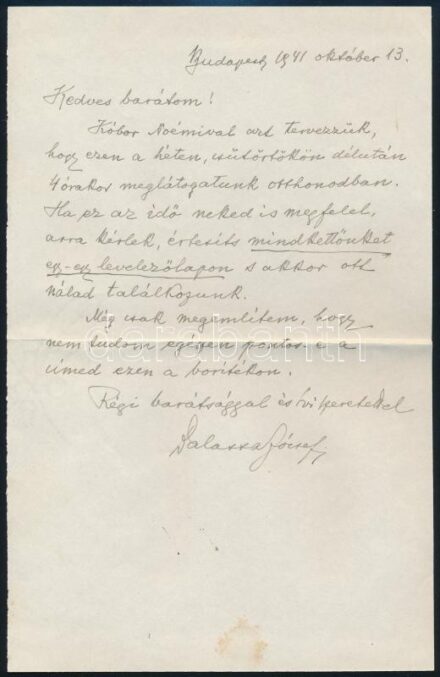 Budapest, 1941 október 13.
Kedves barátom!
Kóbor Noémival azt tervezzük,
hogy ezen a héten, csütörtökön délután
4 órakor meglátogatunk otthonodban.
Ha ez az idő neked is megfelel,
arra kérlek, értesíts mindkettőnket
egy-egy levelezőlapon s akkor ott
nálad találkozunk.
Még csak megemlítem, hogy
nem tudom egészen pontos-e a
címed ezen a borítékon.
Régi barátsággal és szeretettel
Balassa József
darabanth